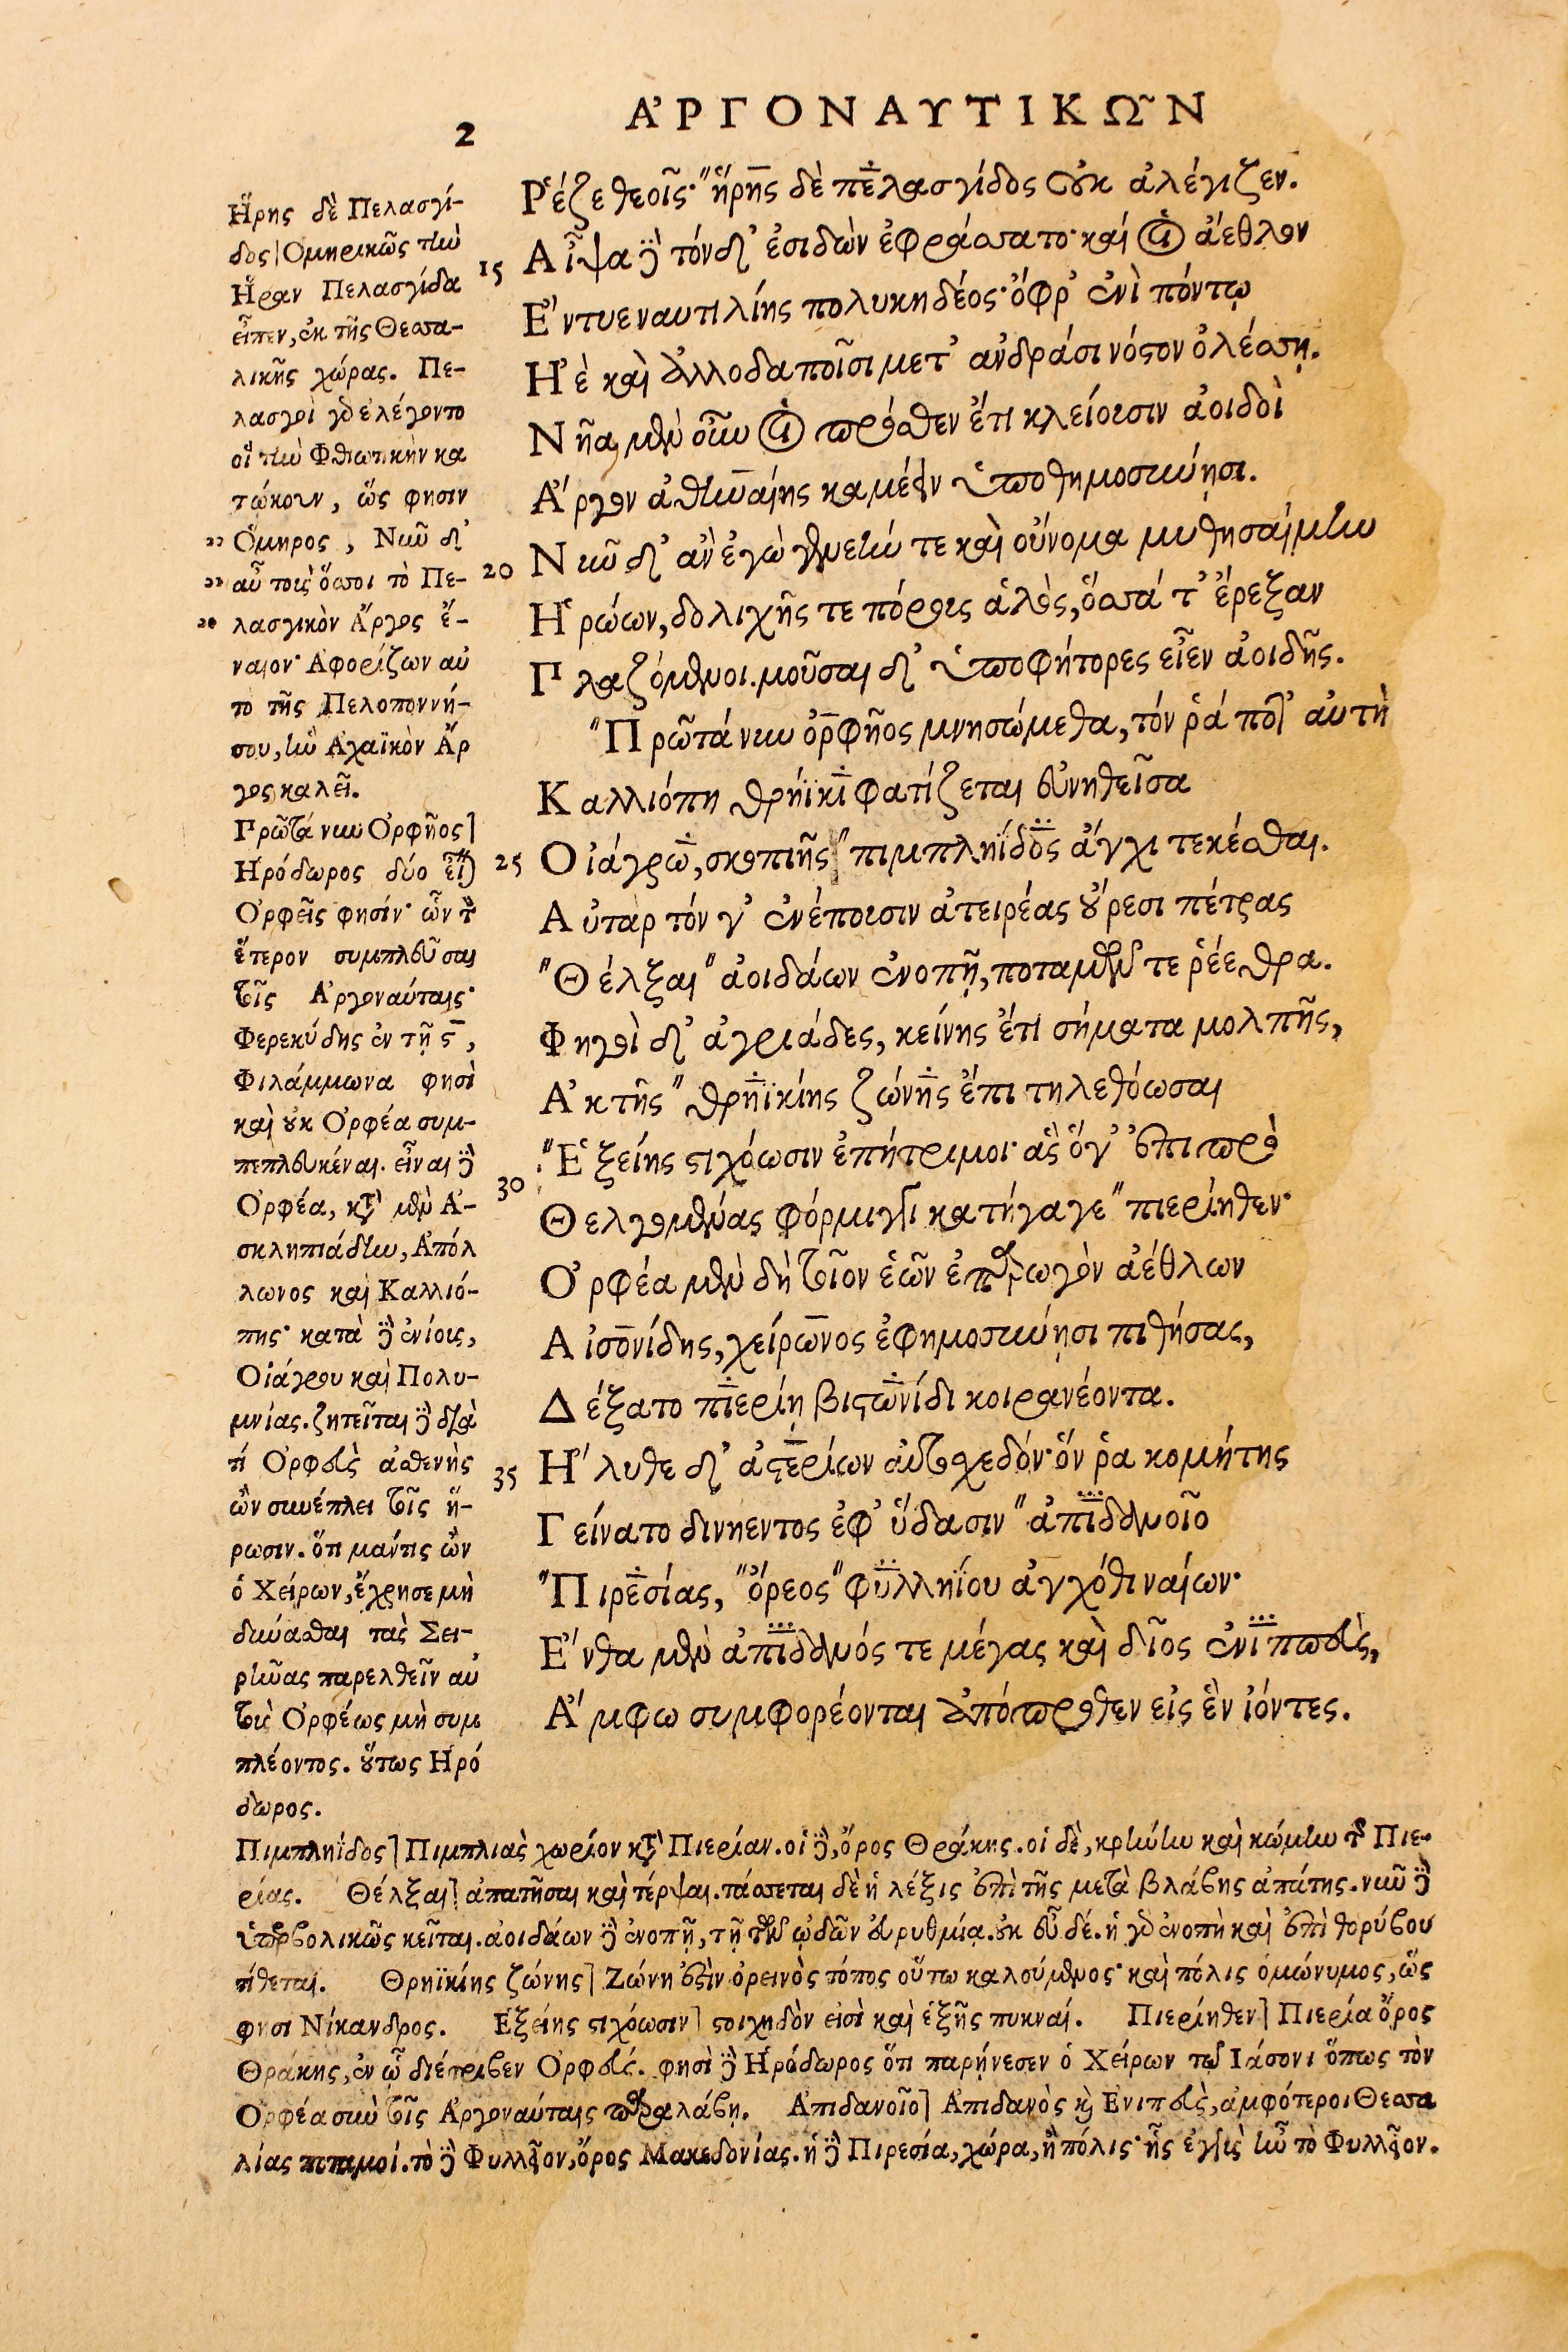 2
ἈΡΓΟΝΑΥΤΙΚΩ͂Ν
Ἥρης δὲ Πελασγί-
δος] Ὁμηρικῶς τὴν
Ἥραν Πελασγίδα
εἶπεν, ἐκ τῆς Θεσσα-
λικῆς χώρας. Πε-
λασγοὶ γὰρ ἐλέγοντο
οἱ τὴν Φθιωτικὴν κα
τῴκουν, ὥς φησιν
" Ὅμηρος, Νῦν δ'
" αὖ τοὺς ὅσσοι τὸ Πε-
" λασγικὸν Ἄργος ἔ-
ναιον· Ἀφορίζων αὐ
τὸ τῆς Πελοποννή-
σου, ἣν Ἀχαϊκὸν Ἄρ
γος καλεῖ.
Πρῶτά νυν Ὀρφῆος]
Ἡρόδωρος δύο εἶναι
Ὀρφεῖς φησίν· ὧν τὸν
ἕτερον συμπλεῦσαι
τοῖς Ἀργοναύταις·
Φερεκύδης ἐν τῇ ϛ,
Φιλάμμωνα φησὶ
καὶ οὐκ Ὀρφέα συμ-
πεπλευκέναι. εἶναι δὲ
Ὀρφέα, κατὰ μὲν Ἀ-
σκληπιάδην, Ἀπόλ
λωνος καὶ Καλλιό-
πης· κατὰ δὲ ἐνίους,
Οἰάγρου καὶ Πολυ-
μνίας. ζητεῖται δὲ διὰ
τί Ὀρφεὺς ἀσθενὴς
ὢν συνέπλει τοῖς ἥ-
ρωσιν. ὅτι μάντις ὢν
ὁ Χείρων, ἔχρησε μὴ
δύνασθαι τὰς Σει-
ρῆνας παρελθεῖν αὐ
τοὺς Ὀρφέως μὴ συμ
πλέοντος. οὕτως Ἡρό
δωρος.
Ῥέζε θεοῖς· "ἥρης δὲ πελασγίδος οὐκ ἀλέγιζεν.
15 Αἶψα δὲ τόνδ' ἐσιδὼν ἐφράσσατο· καί οἱ ἄεθλον
Ἔντυε ναυτιλίης πολυκηδέος· ὄφρ' ἐνὶ πόντῳ
Ἠὲ καὶ ἀλλοδαποῖσι μετ' ἀνδράσι νόστον ὀλέσσῃ.
Νῆα μὲν οὖν οἱ πρόσθεν ἔτι κλείουσιν ἀοιδοὶ
Ἄργον ἀθηναίης καμέειν ὑποθημοσύνῃσι.
20 Νῦν δ' ἂν ἐγὼ γενεήν τε καὶ οὔνομα μυθησαίμην
Ἡρώων, δολιχῆς τε πόρους ἁλὸς, ὅσσά τ' ἔρεξαν
Πλαζόμενοι. μοῦσαι δ' ὑποφήτορες εἶεν ἀοιδῆς.
"Πρῶτά νυν ὀρφῆος μνησώμεθα, τόν ῥά ποτ' αὐτὴ
Καλλιόπη θρήϊκι φατίζεται εὐνηθεῖσα
25 Οἰάγρῳ, σκοπιῆς "πιμπληΐδος ἄγχι τεκέσθαι.
Αὐτὰρ τόν γ' ἐνέπουσιν ἀτειρέας οὔρεσι πέτρας
"Θέλξαι "ἀοιδάων ἐνοπῇ, ποταμῶν τε ῥέεθρα.
Φηγοὶ δ' ἀγριάδες, κείνης ἔτι σήματα μολπῆς,
Ἀκτῆς "θρηϊκίης ζώνης ἔπι τηλεθόωσαι
30 "Ἑξείης στιχόωσιν ἐπήτριμοι· ἃς ὅγ' ἐπιπρὸ
Θελγομένας φόρμιγγι κατήγαγε "πιερίηθεν·
Ὀρφέα μὲν δὴ τοῖον ἑῶν ἐπαρωγὸν ἀέθλων
Αἰσονίδης, χείρωνος ἐφημοσύνῃσι πιθήσας,
Δέξατο πιερίῃ βιστωνίδι κοιρανέοντα.
35 Ἤλυθε δ' ἀστερίων αὐτοσχεδόν· ὅν ῥα κομήτης
Γείνατο δινήεντος ἐφ' ὕδασιν "ἀπιδανοῖο
"Πιρεσίας, "ὄρεος "φυλληΐου ἀγχόθι ναίων·
Ἔνθα μὲν ἀπιδανός τε μέγας καὶ δῖος ἐνιπωεὺς,
Ἄμφω συμφορέονται ἀπόπροθεν εἰς ἓν ἰόντες.
Πιμπληΐδος] Πιμπλιὰς χωρίον κατὰ Πιερίαν. οἱ δὲ, ὄρος Θράκης. οἱ δὲ, κρήνην καὶ κώμην τῆς Πιε-
ρίας. Θέλξαι] ἀπατῆσαι καὶ τέρψαι. τάσσεται δὲ ἡ λέξις ἐπὶ τῆς μετὰ βλάβης ἀπάτης. νῦν δὲ
ὑπερβολικῶς κεῖται. ἀοιδάων δὲ ἐνοπῇ, τῇ τῶν ᾠδῶν εὐρυθμίᾳ. οὐκ εὖ δέ. ἡ γὰρ ἐνοπὴ καὶ ἐπὶ θορύβου
τίθεται. Θρηϊκίης ζώνης] Ζώνη ἐστὶν ὀρεινὸς τόπος οὕτω καλούμενος· καὶ πόλις ὁμώνυμος, ὥς
φησι Νίκανδρος. Ἑξείης στιχόωσιν] στοιχηδὸν εἰσὶ καὶ ἑξῆς πυκναί. Πιερίηθεν] Πιερία ὄρος
Θράκης, ἐν ᾧ διέτριβεν Ὀρφεύς. φησὶ δὲ Ἡρόδωρος ὅτι παρῄνεσεν ὁ Χείρων τῷ Ἰάσονι ὅπως τὸν
Ὀρφέα σὺν τοῖς Ἀργοναύταις παραλάβῃ. Ἀπιδανοῖο] Ἀπιδανὸς καὶ Ἐνιπεὺς, ἀμφότεροι Θεσσα
λίας ποταμοί. τὸ δὲ Φυλλεῖον, ὄρος Μακεδονίας. ἡ δὲ Πιρεσία, χώρα, ἢ πόλις· ἧς ἐγγὺς ἦν τὸ Φυλλεῖον.